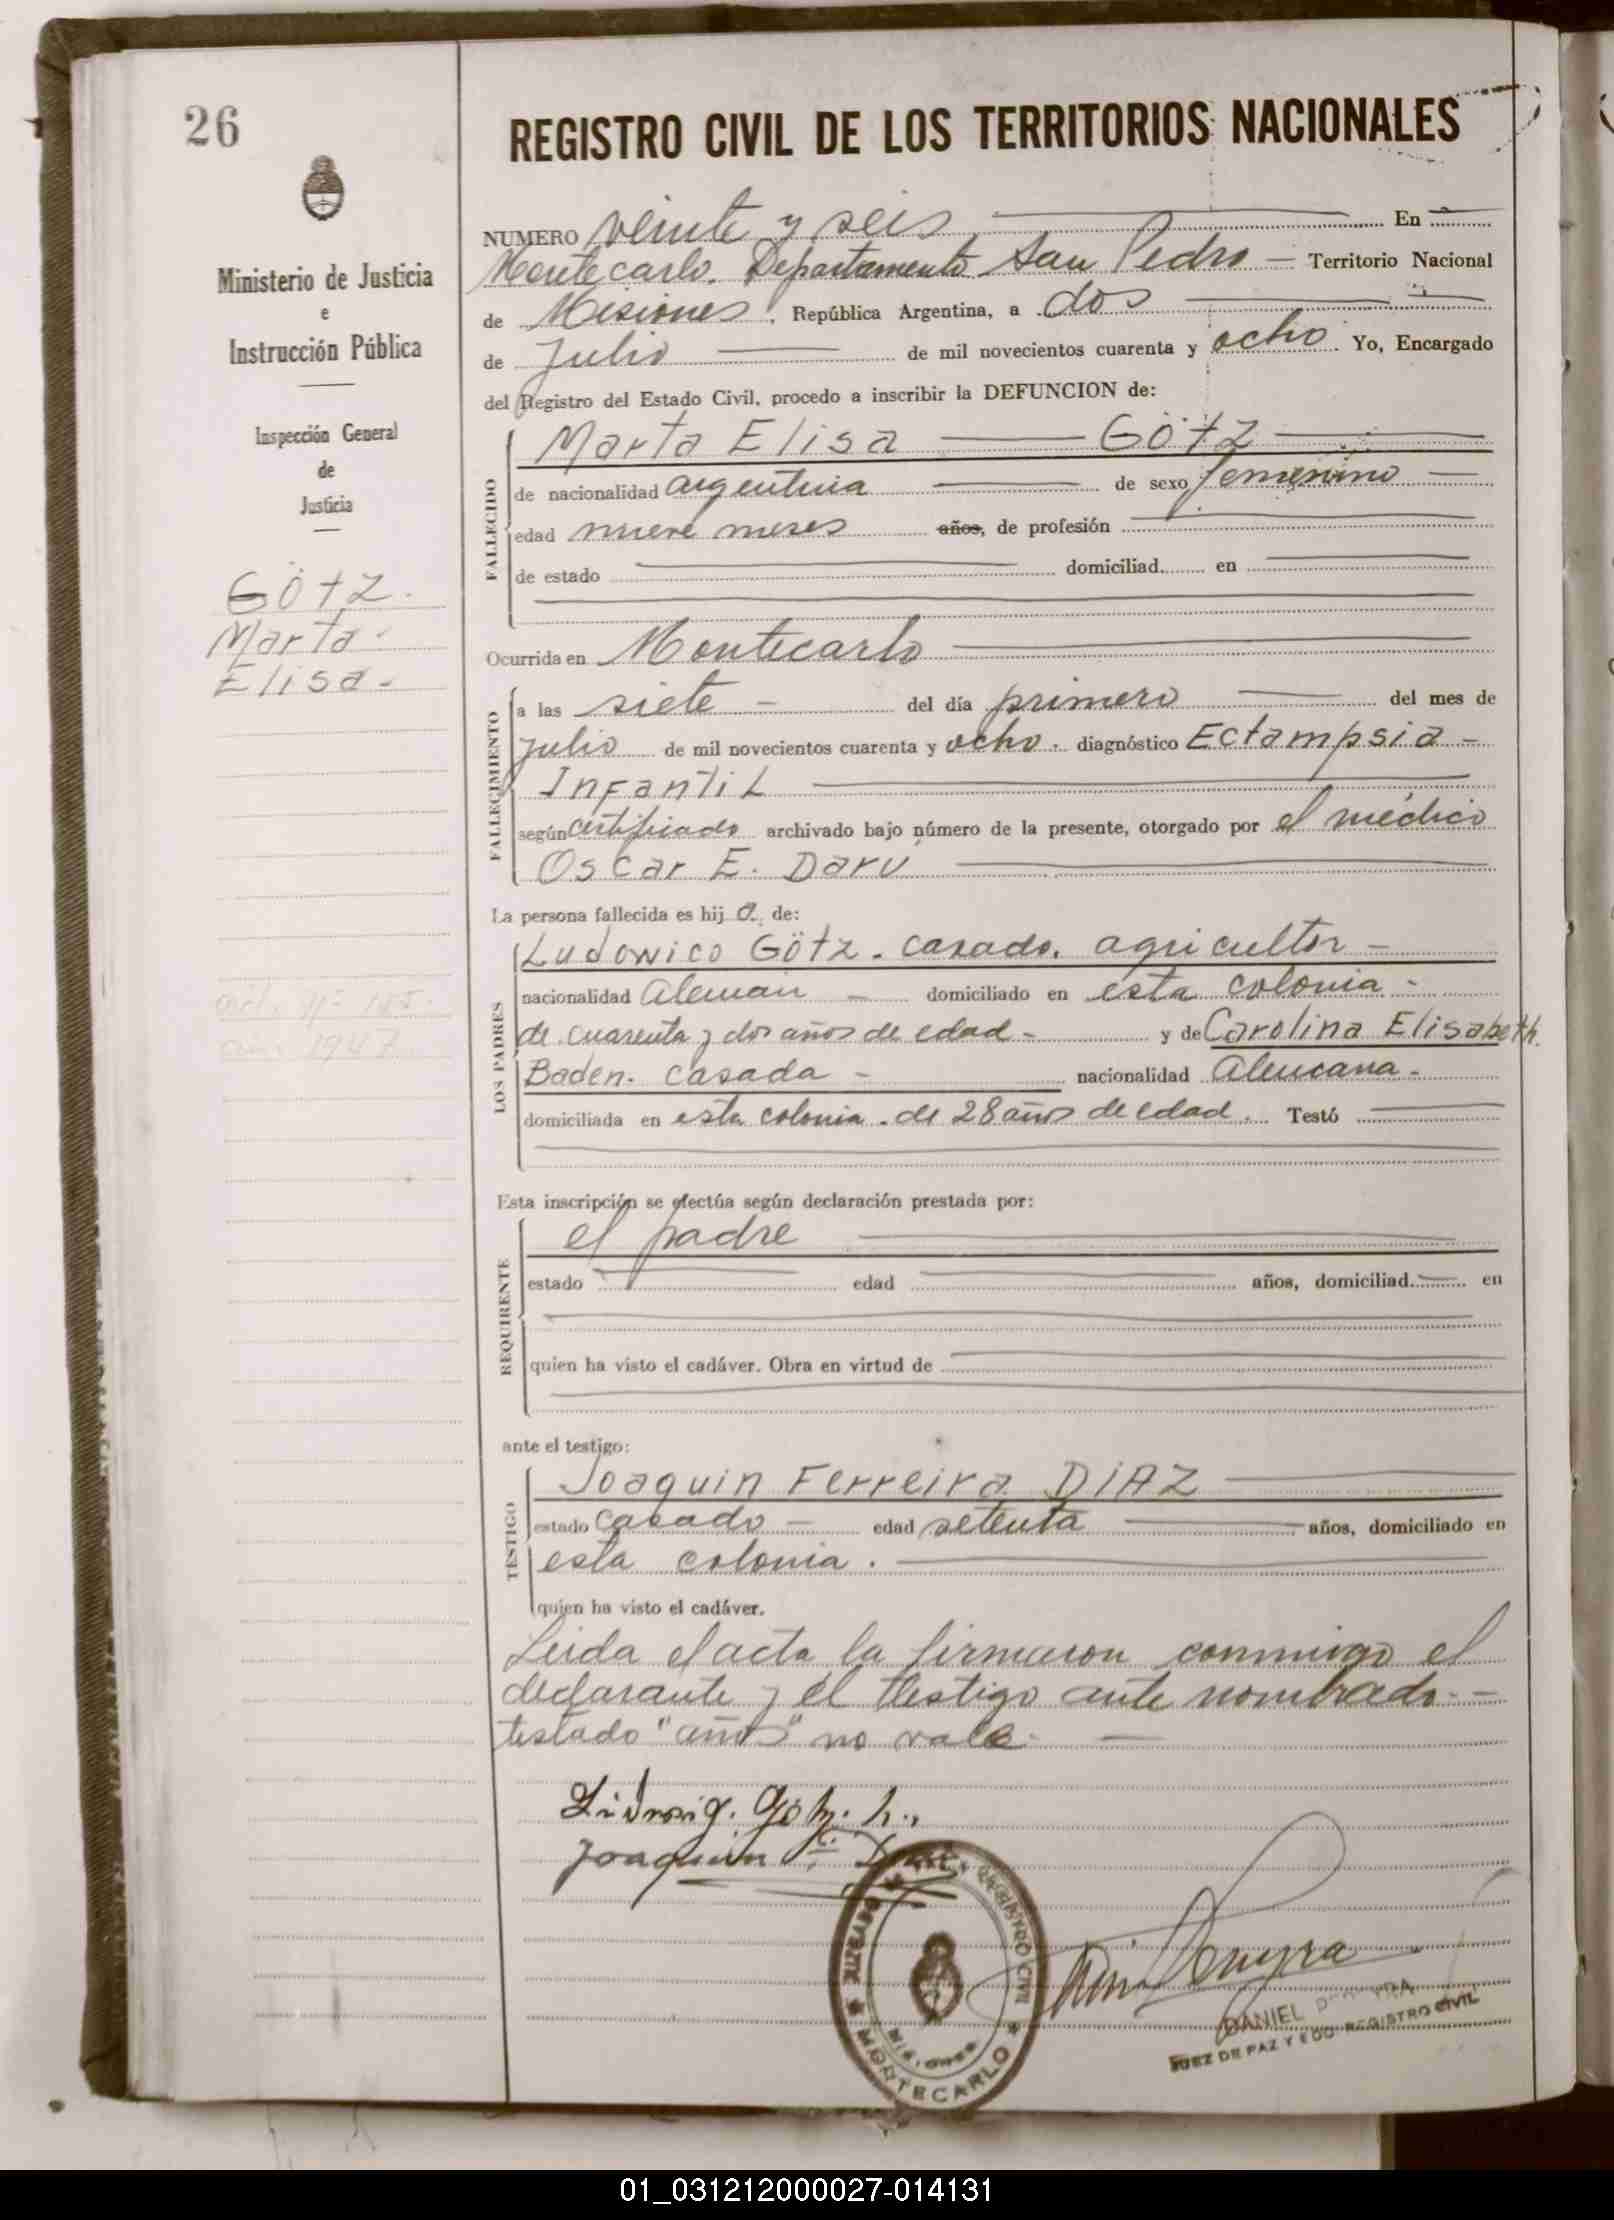 26
REGISTRO CIVIL DE LOS TERRITORIOS NACIONALES
Ministerio de Justicia
e
Instrucción Pública
Inspección General
de
Justicia
Götz.
Marta
Elisa-
NUMERO veinte y seis En
Montecarlo. Departamento San Pedro Territorio Nacional
de Misiones, República Argentina, a dos
de Julio de mil novecientos cuarenta y ocho. Yo, Encargado
del Registro del Estado Civil, procedo a inscribir la DEFUNCION de:
FALLECIDO
Marta Elisa Götz
de nacionalidad argentina de sexo femenino
edad nueve meses años, de profesión
de estado domiciliad en
Ocurrida en Montecarlo
FALLECIMIENTO
a las siete del día primero del mes de
julio de mil novecientos cuarenta y ocho. diagnóstico Ectampsia -
Infantil
según certificado archivado bajo número de la presente, otorgado por el médico
Oscar E. Daru
La persona fallecida es hija de:
LOS PADRES
Ludowico Götz. casado. agricultor -
nacionalidad Aleman domiciliado en esta colonia -
de cuarenta y dos años de edad - y de Carolina Elisabeth.
Baden. casada - nacionalidad Alemana -
domiciliada en esta colonia. de 28 años de edad. Testó
Esta inscripción se efectúa según declaración prestada por:
REQUIRENTE
el padre
estado edad años, domiciliad en
quien ha visto el cadáver. Obra en virtud de
ante el testigo:
TESTIGO
Joaquin Ferreira DIAZ
estado casado edad setenta años, domiciliado en
esta colonia.
quien ha visto el cadáver.
Leida el acta la firmaron conmigo el
declarante y el testigo ante nombrado -
testado "años" no vale.
Ludwig. Götz. h.
Joaquin F. Diaz
JUZGADO DE PAZ Y REGISTRO CIVIL
MISIONES
MONTECARLO
DANIEL
JUEZ DE PAZ Y EDO REGISTRO CIVIL
01_031212000027-014131